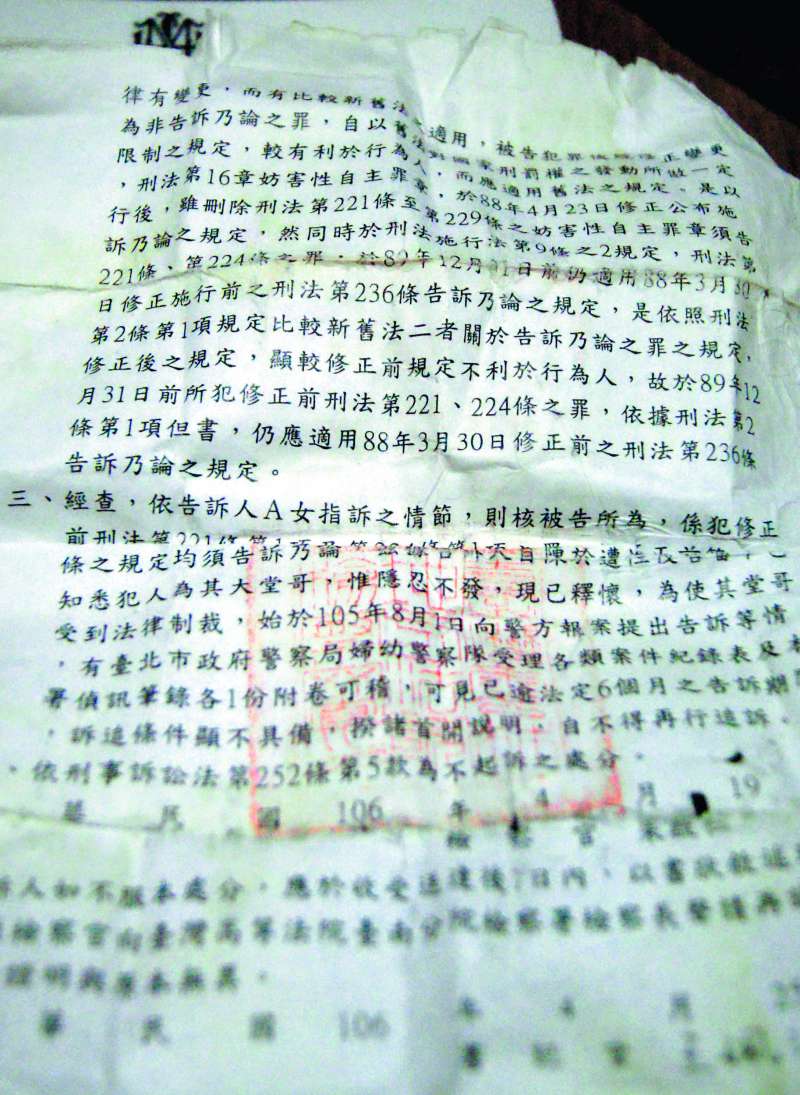 律有變更，而有比較新舊法之適用，被告犯罪後經修正變更
為非告訴乃論之罪，自以舊法對國家刑罰權之發動所做一定
限制之規定，較有利於行為人，而應適用舊法之規定。是以
，刑法第16章妨害性自主罪章，於88年4月23日修正公布施
行後，雖刪除刑法第221條至第229條之妨害性自主罪章須告
訴乃論之規定，然同時於刑法施行法第9條之2規定，刑法第
221條、第224條之罪，於89年12月31日前仍適用88年3月30
日修正施行前之刑法第236條告訴乃論之規定，是依照刑法
第2條第1項規定比較新舊法二者關於告訴乃論之罪之規定，
修正後之規定，顯較修正前規定不利於行為人，故於89年12
月31日前所犯修正前刑法第221、224條之罪，依據刑法第2
條第1項但書，仍應適用88年3月30日修正前之刑法第236條
告訴乃論之規定。
三、經查，依告訴人A女指訴之情節，則核被告所為，係犯修正
前刑法第221條第
條之規定均須告訴乃論
知悉犯人為其大堂哥，惟隱忍不發，現已釋懷，為使其堂哥
受到法律制裁，始於105年8月1日向警方報案提出告訴等情
，有臺北市政府警察局婦幼警察隊受理各類案件紀錄表及本
署偵訊筆錄各1份附卷可稽，可見已逾法定6個月之告訴期間
，訴追條件顯不具備，揆諸首開說明，自不得再行追訴。
、依刑事訴訟法第252條第5款為不起訴之處分。
華 民 國 106 年 4 月 19
檢 察 官
人如不服本處分，應於收受送達後7日內，以書狀敘述
檢察官向臺灣高等法院臺南分院檢察署檢察長聲請再
證明與原本無異。
華 民 國 106 年 4 月
書 記 官